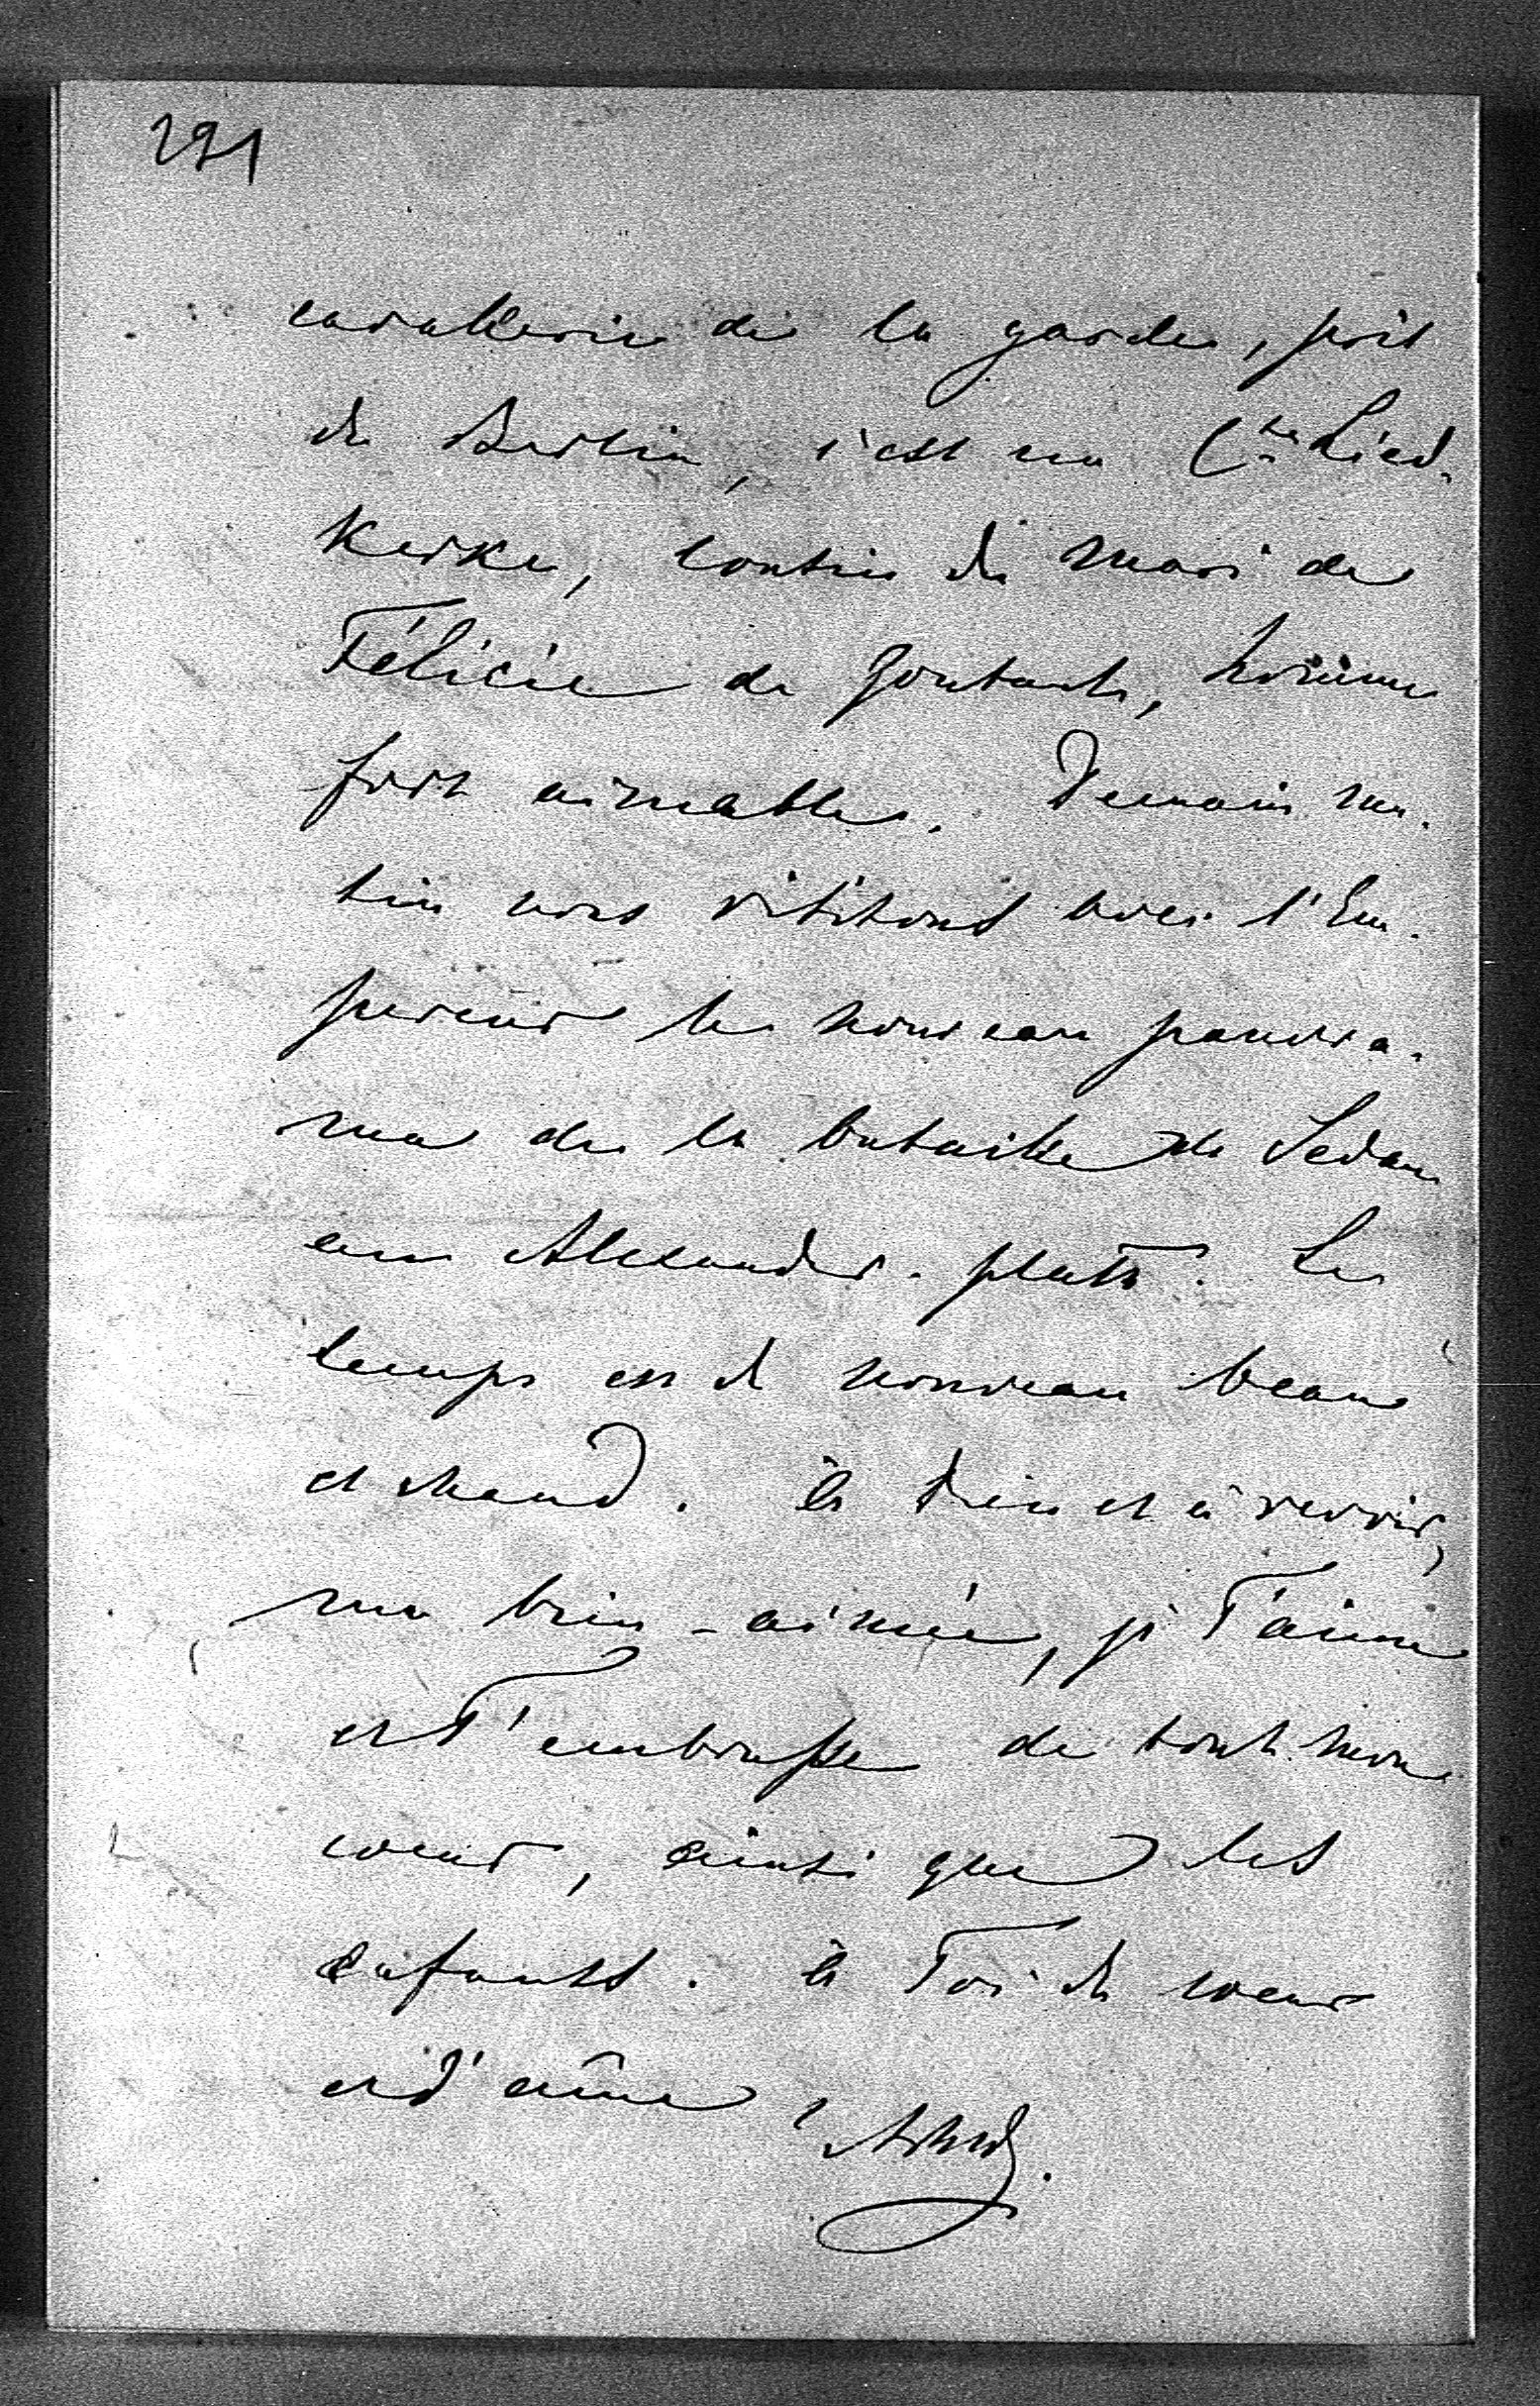 291
cavallerie de la garde, près
de Berlin, c'est un Cte Lied-
kerke, cousin du mari de
Félicie de Gontaut, homme
fort aimable. Demain ma-
tin nous visitons avec l'Em-
pereur le nouveau panora-
ma de la bataille de Sedan
am Alexander-platz. Le
temps est de nouveau beau
et chaud. à Dieu et à revoir,
ma bien-aimée, je T'aime
et T'embrasse de tout mon
coeur, ainsi que les
enfants. à Toi de coeur
et d'âme